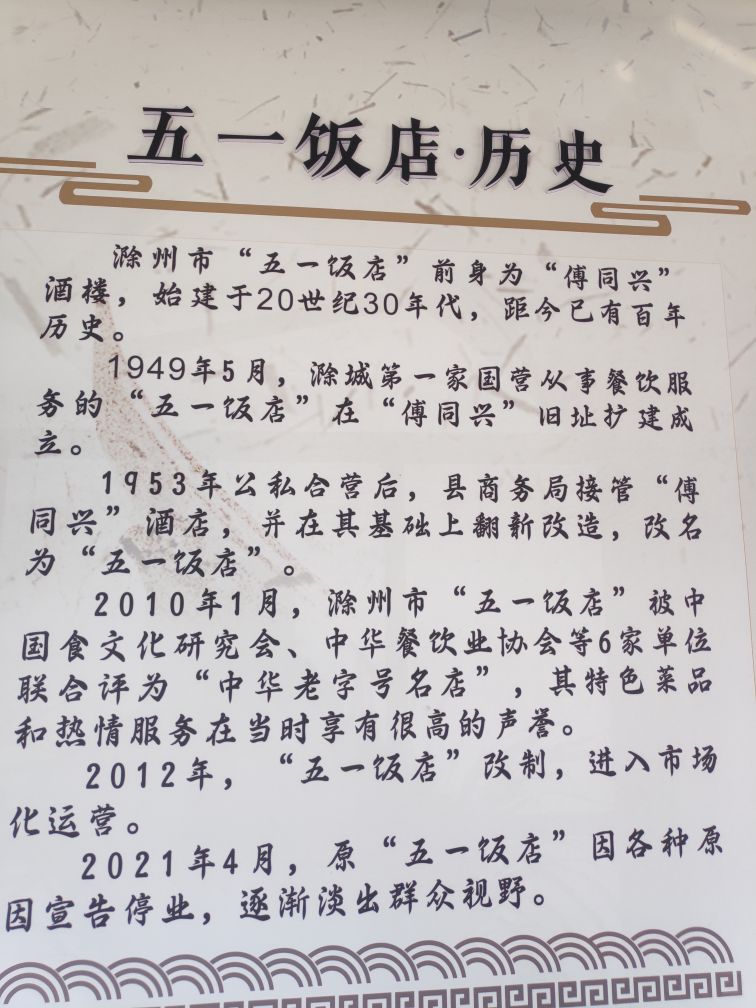 五一饭店·历史
滁州市“五一饭店”前身为“傅同兴”
酒楼，始建于20世纪30年代，距今已有百年
历史。
1949年5月，滁城第一家国营从事餐饮服
务的“五一饭店”在“傅同兴”旧址扩建成
立。
1953年公私合营后，县商务局接管“傅
同兴”酒店，并在其基础上翻新改造，改名
为“五一饭店”。
2010年1月，滁州市“五一饭店”被中
国食文化研究会、中华餐饮业协会等6家单位
联合评为“中华老字号名店”，其特色菜品
和热情服务在当时享有很高的声誉。
2012年，“五一饭店”改制，进入市场
化运营。
2021年4月，原“五一饭店”因各种原
因宣告停业，逐渐淡出群众视野。